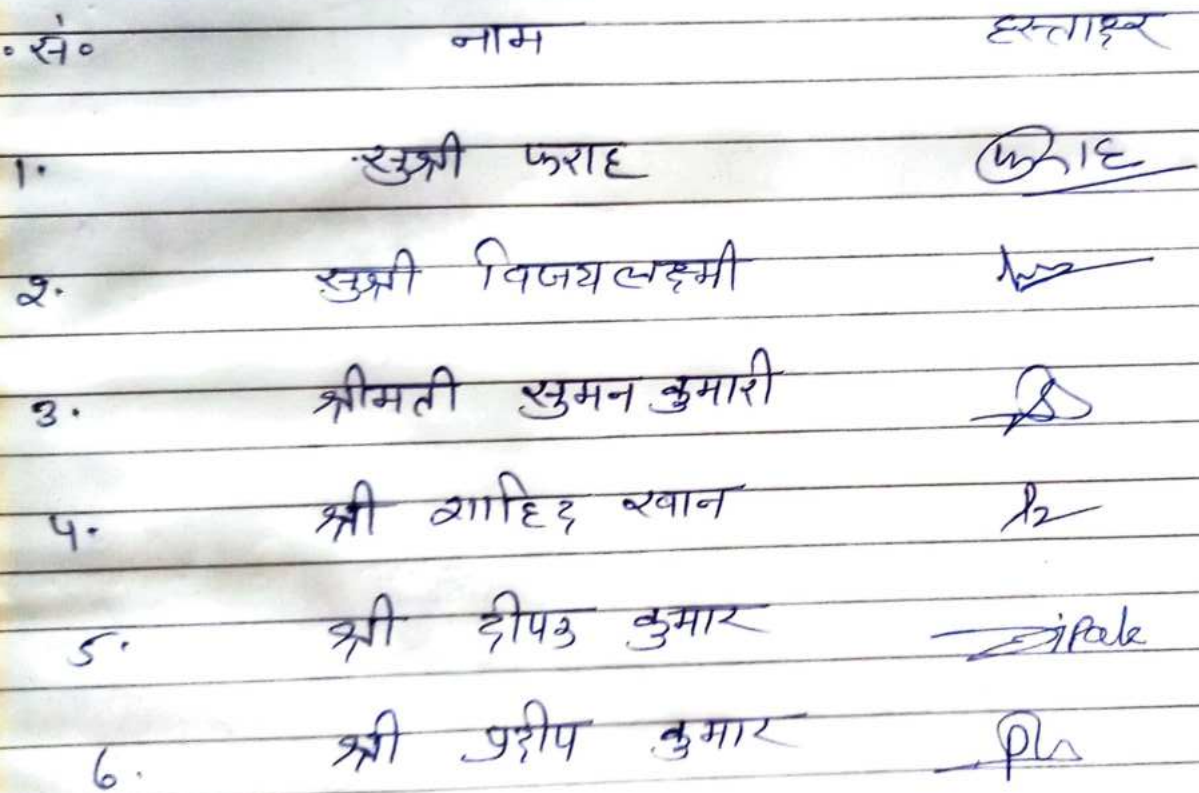 ॰ सं॰ नाम हस्ताक्षर
1. सुश्री फराह फराह
2. सुश्री विजयलक्ष्मी
3. श्रीमती सुमन कुमारी
4. श्री शाहिद खान
5. श्री दीपक कुमार Dipak
6. श्री प्रदीप कुमार